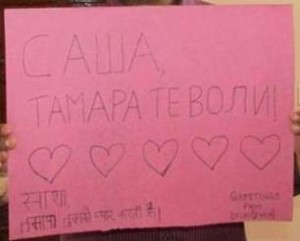 САША,
ТАМАРА ТЕ ВОЛИ!
साशा,
तमारा तुमसे प्यार करती है!
GREETINGS
FROM